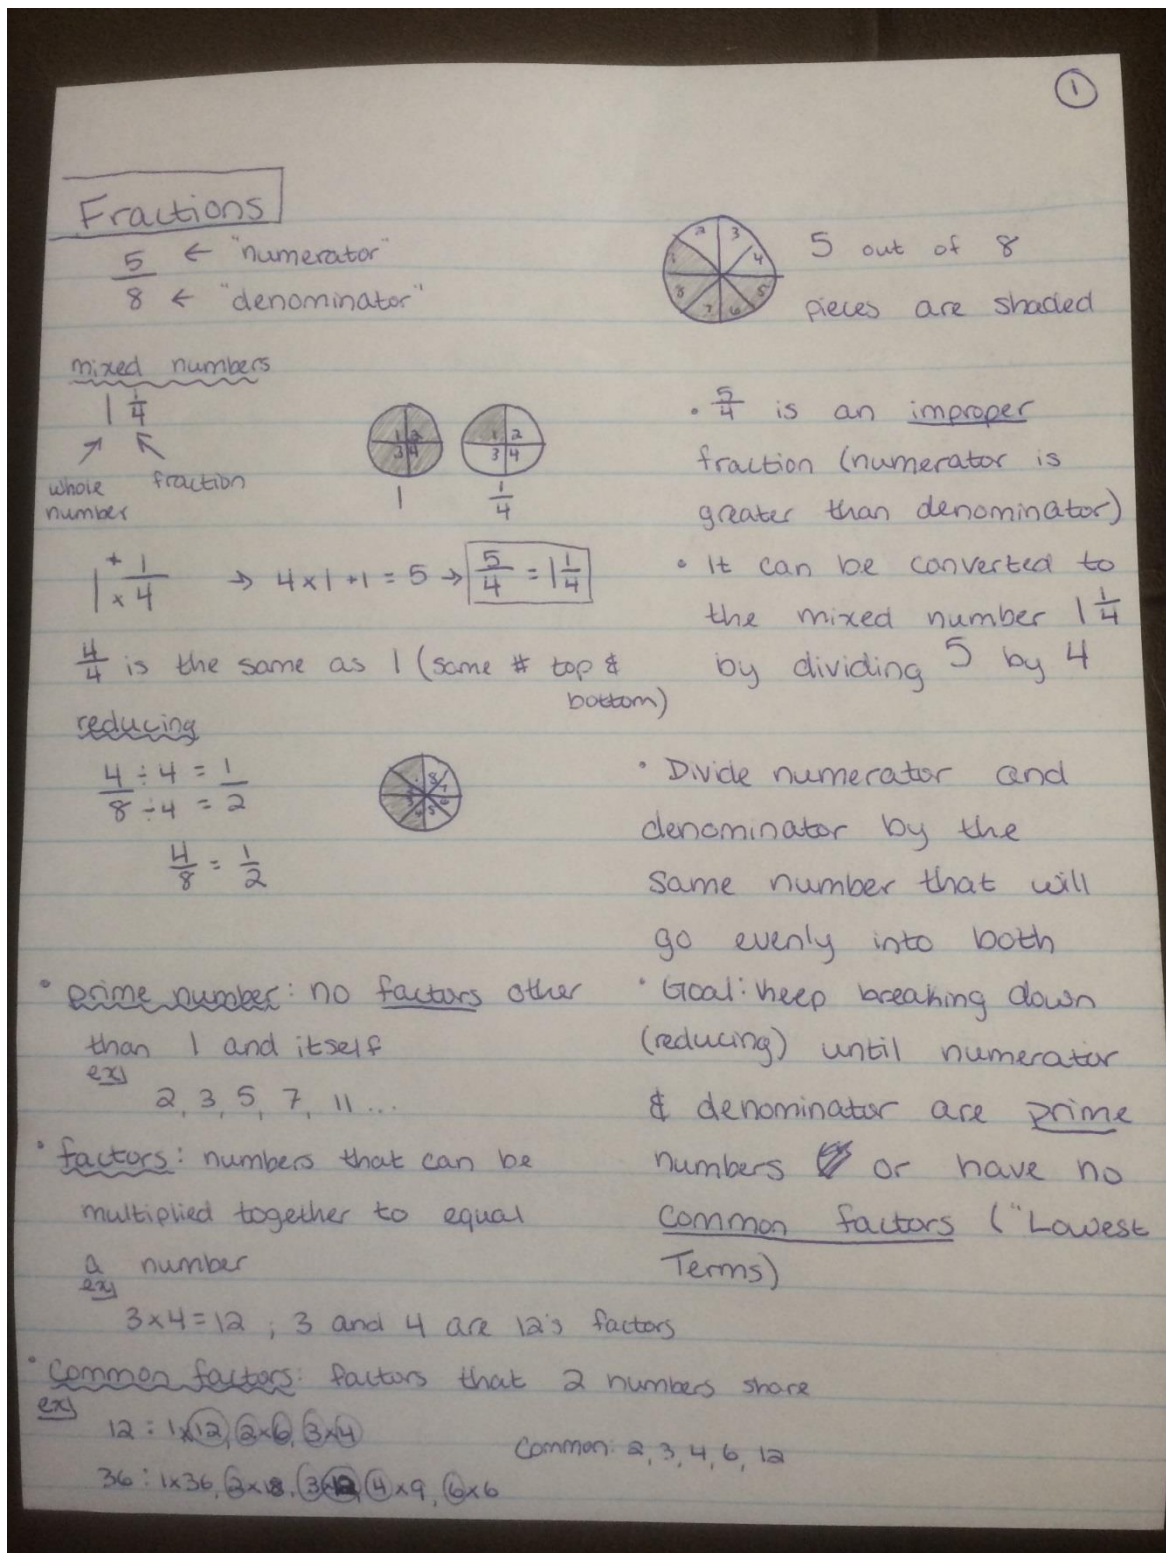 1
Fractions
5 ← "numerator"
8 ← "denominator"
1 2 3 4 5 6 7 8
5 out of 8
pieces are shaded
mixed numbers
1 1/4
whole number
fraction
1 2 3 4
1
1 2 3 4
1/4
1 + 1
× 4
→ 4 × 1 + 1 = 5 → 5/4 = 1 1/4
4/4 is the same as 1 (same # top &
bottom)
• 5/4 is an improper
fraction (numerator is
greater than denominator)
• It can be converted to
the mixed number 1 1/4
by dividing 5 by 4
reducing
4 ÷ 4 = 1
8 ÷ 4 = 2
4/8 = 1/2
• Divide numerator and
denominator by the
same number that will
go evenly into both
• Goal: keep breaking down
(reducing) until numerator
& denominator are prime
numbers or have no
common factors ("Lowest
Terms)
• prime number: no factors other
than 1 and itself
ex)
2, 3, 5, 7, 11 ...
• factors: numbers that can be
multiplied together to equal
a number
ex)
3×4=12 ; 3 and 4 are 12's factors
• common factors: factors that 2 numbers share
ex)
12 : 1×12, 2×6, 3×4
36 : 1×36, 2×18, 3×12, 4×9, 6×6
Common: 2, 3, 4, 6, 12